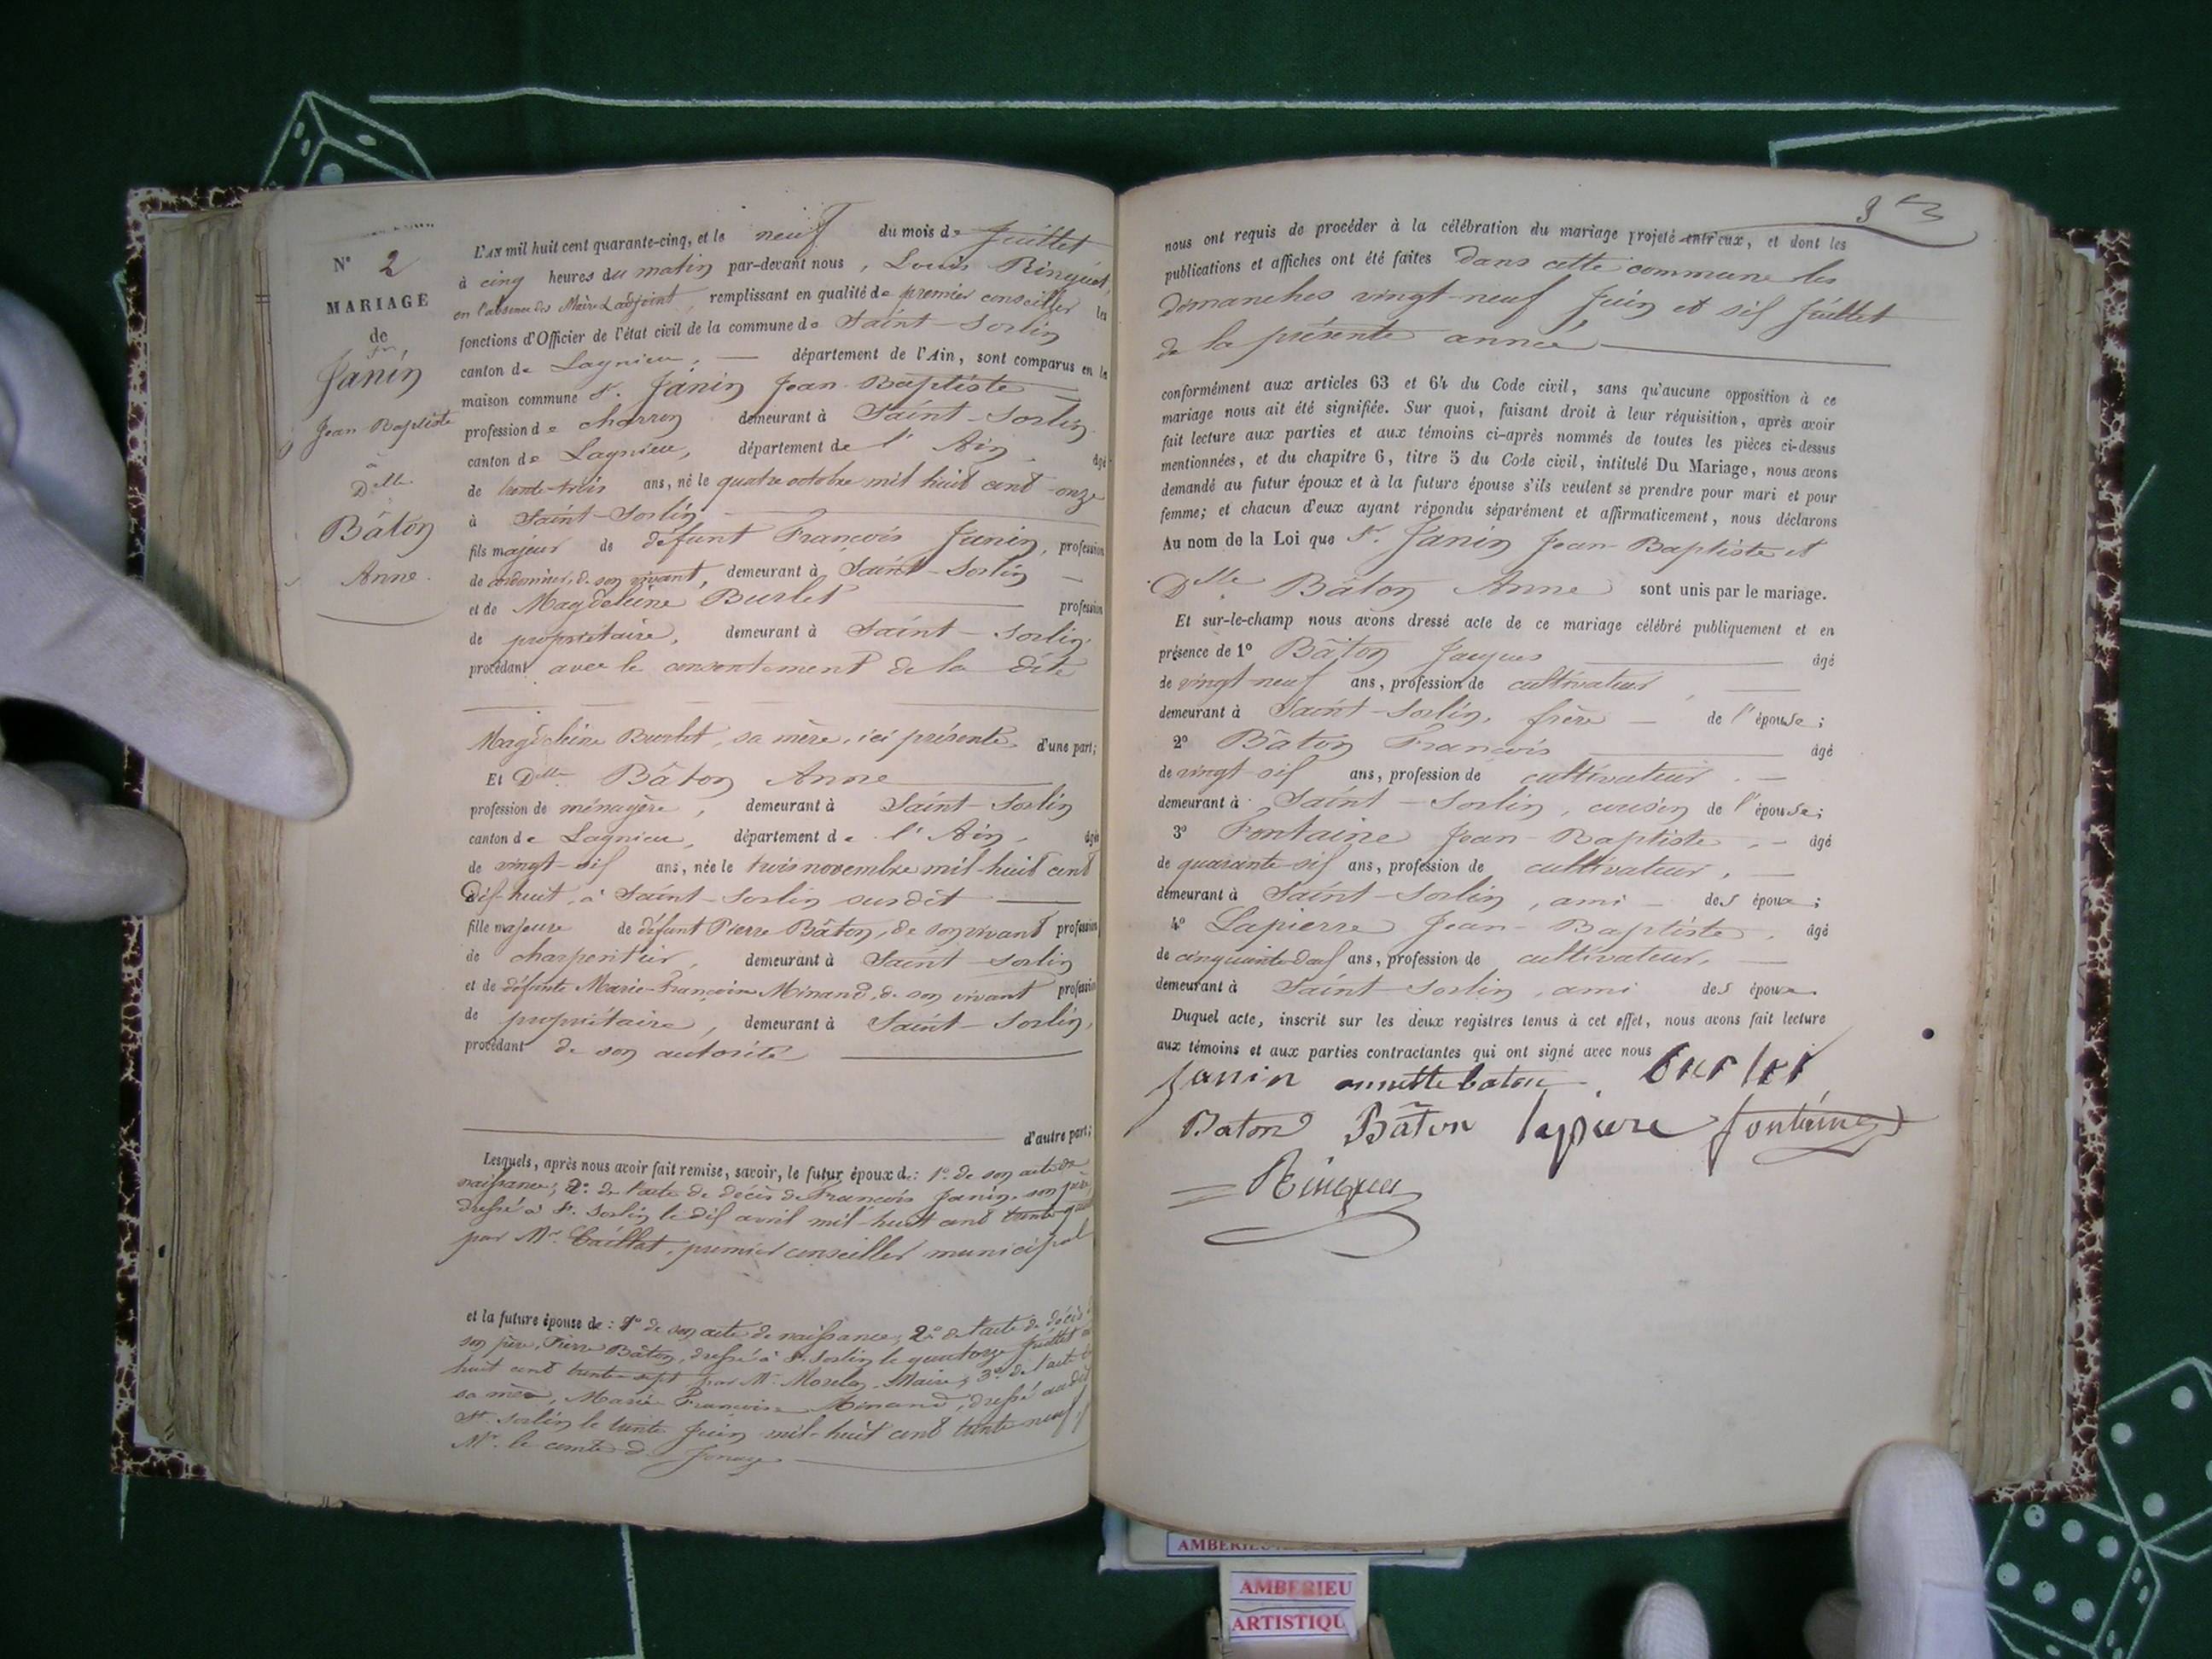 N° 2
MARIAGE
de
Sr
Janin
Jean Baptiste
à
Delle
Bâton
Anne.
L'AN mil huit cent quarante-cinq, et le neuf du mois de Juillet
à cinq heures du matin par-devant nous, Louis
en l'absence des Maire & adjoint, remplissant en qualité de premier conseiller les
fonctions d'Officier de l'état civil de la commune de Saint-Sorlin
canton de Lagnieu, département de l'Ain, sont comparus en la
maison commune Sr. Janin Jean-Baptiste
profession de charron demeurant à Saint-Sorlin
canton de Lagnieu, département de l'Ain, âgé
de trente-trois ans, né le quatre octobre mil huit cent onze
à Saint-Sorlin
fils majeur de défunt François Janin, profession
de cordonnier, de son vivant, demeurant à Saint-Sorlin
et de Magdeleine Burlet profession
de propriétaire, demeurant à Saint-Sorlin,
procédant avec le consentement de la dite
Magdeleine Burlet, sa mère, ici présente, d'une part;
Et Delle Bâton Anne
profession de ménagère, demeurant à Saint-Sorlin
canton de Lagnieu, département de l'Ain, âgée
de vingt-six ans, née le trois novembre mil huit cent
dix-huit, à Saint-Sorlin susdit
fille majeure de défunt Pierre Bâton, de son vivant profession
de charpentier, demeurant à Saint-Sorlin
et de défunte Marie-Françoise Minand, de son vivant profession
de propriétaire, demeurant à Saint-Sorlin,
procédant de son autorité
d'autre part;
Lesquels, après nous avoir fait remise, savoir, le futur époux de: 1° de son acte de
naissance; 2° de l'acte de décès de François Janin, son père,
dressé à St. Sorlin le dix avril mil-huit cent trente
par Mr. premier conseiller municipal
et la future épouse de: 1° de son acte de naissance; 2° de l'acte de décès
son père, Pierre Bâton, dressé à St. Sorlin le quatorze Juillet
huit cent trente-sept par Mr. Maire; 3° de l'acte
sa mère, Marie Françoise Minand, dressé audit
St. Sorlin le trente Juin mil-huit cent trente neuf,
Mr. le comte de
nous ont requis de procéder à la célébration du mariage projeté entr'eux, et dont les
publications et affiches ont été faites dans cette commune les
dimanches vingt-neuf Juin et six Juillet
de la présente année
conformément aux articles 63 et 64 du Code civil, sans qu'aucune opposition à ce
mariage nous ait été signifiée. Sur quoi, faisant droit à leur réquisition, après avoir
fait lecture aux parties et aux témoins ci-après nommés de toutes les pièces ci-dessus
mentionnées, et du chapitre 6, titre 5 du Code civil, intitulé Du Mariage, nous avons
demandé au futur époux et à la future épouse s'ils veulent se prendre pour mari et pour
femme; et chacun d'eux ayant répondu séparément et affirmativement, nous déclarons
Au nom de la Loi que Sr. Janin Jean-Baptiste et
Delle Bâton Anne sont unis par le mariage.
Et sur-le-champ nous avons dressé acte de ce mariage célébré publiquement et en
présence de 1° Bâton Jacques âgé
de vingt-neuf ans, profession de cultivateur,
demeurant à Saint-Sorlin, frère de l'épouse;
2° Bâton François âgé
de vingt-six ans, profession de cultivateur.
demeurant à Saint-Sorlin, cousin de l'épouse;
3° Fontaine Jean-Baptiste, âgé
de quarante-six ans, profession de cultivateur,
demeurant à Saint-Sorlin, ami des époux;
4° Lapierre Jean-Baptiste, âgé
de ans, profession de cultivateur,
demeurant à Saint-Sorlin, ami des époux.
Duquel acte, inscrit sur les deux registres tenus à cet effet, nous avons fait lecture
aux témoins et aux parties contractantes qui ont signé avec nous
Janin annette baton burlet
Baton Bâton lapiere fontaine
AMBERIEU
ARTISTIQU